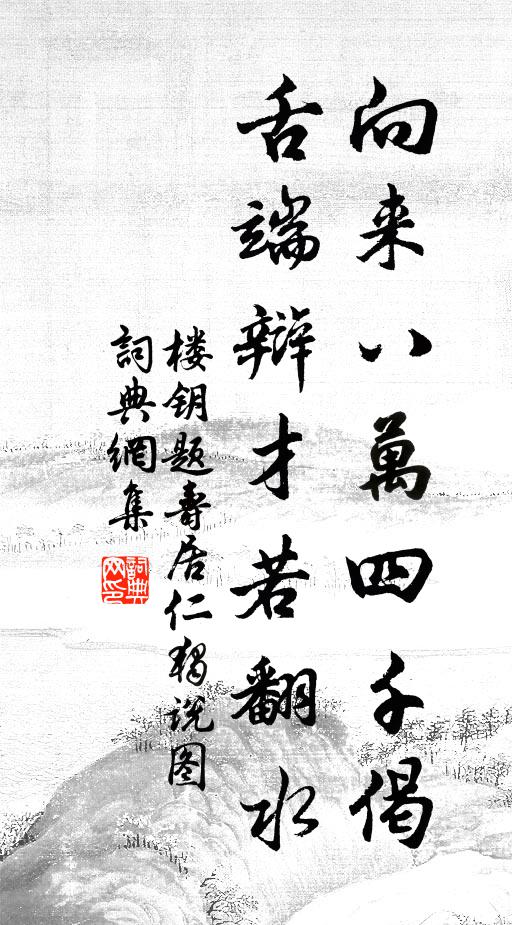 向来八萬四千偈
舌端辯才若翻水
楼钥题寿居仁独说图
詞典網集
詞典网